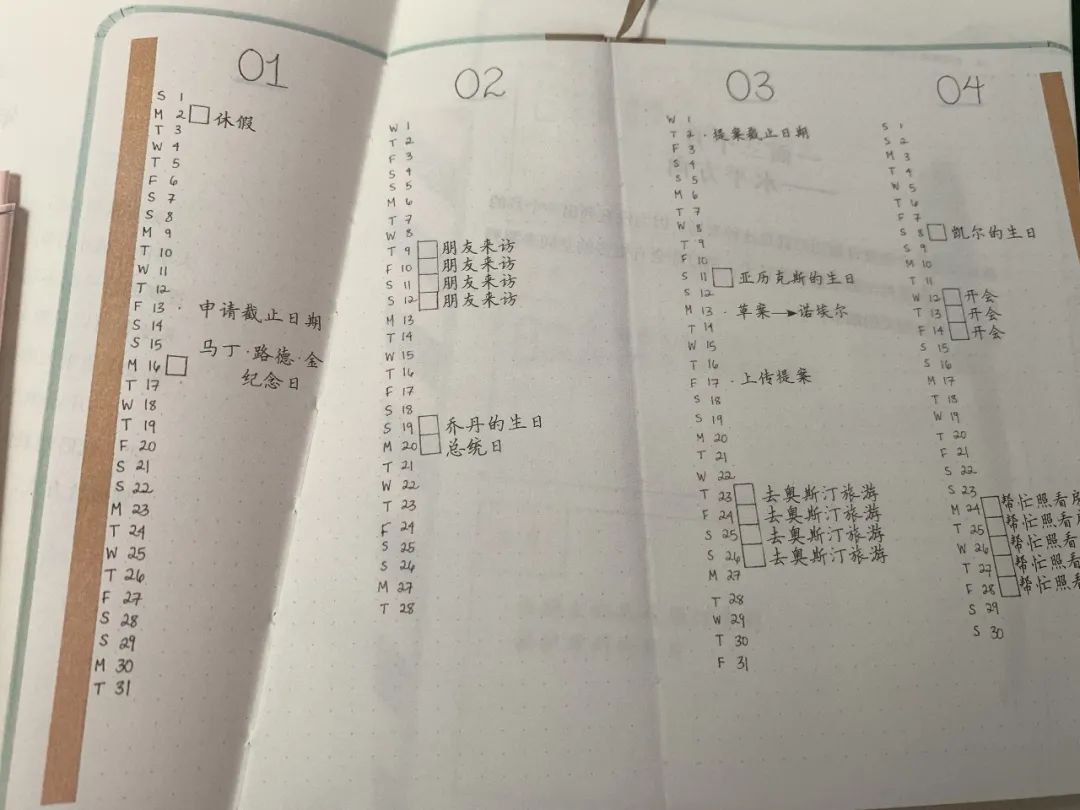 01
S 1
M 2 休假
T 3
W 4
T 5
F 6
S 7
S 8
M 9
T 10
W 11
T 12
F 13 · 申请截止日期
S 14
S 15
M 16 马丁·路德·金
纪念日
T 17
W 18
T 19
F 20
S 21
S 22
M 23
T 24
W 25
T 26
F 27
S 28
S 29
M 30
T 31
02
W 1
T 2
F 3
S 4
S 5
M 6
T 7
W 8
T 9 朋友来访
F 10 朋友来访
S 11 朋友来访
S 12 朋友来访
M 13
T 14
W 15
T 16
F 17
S 18
S 19 乔丹的生日
M 20 总统日
T 21
W 22
T 23
F 24
S 25
S 26
M 27
T 28
03
W 1
T 2 · 提案截止日期
F 3
S 4
S 5
M 6
T 7
W 8
T 9
F 10
S 11 亚历克斯的生日
S 12
M 13 · 草案→诺埃尔
T 14
W 15
T 16
F 17 · 上传提案
S 18
S 19
M 20
T 21
W 22
T 23 去奥斯汀旅游
F 24 去奥斯汀旅游
S 25 去奥斯汀旅游
S 26 去奥斯汀旅游
M 27
T 28
W 29
T 30
F 31
04
S 1
S 2
M 3
T 4
W 5
T 6
F 7
S 8 凯尔的生日
S 9
M 10
T 11
W 12 开会
T 13 开会
F 14 开会
S 15
S 16
M 17
T 18
W 19
T 20
F 21
S 22
S 23
M 24 帮忙照看
T 25 帮忙照看
W 26 帮忙照看
T 27 帮忙照看
F 28 帮忙照看
S 29
S 30